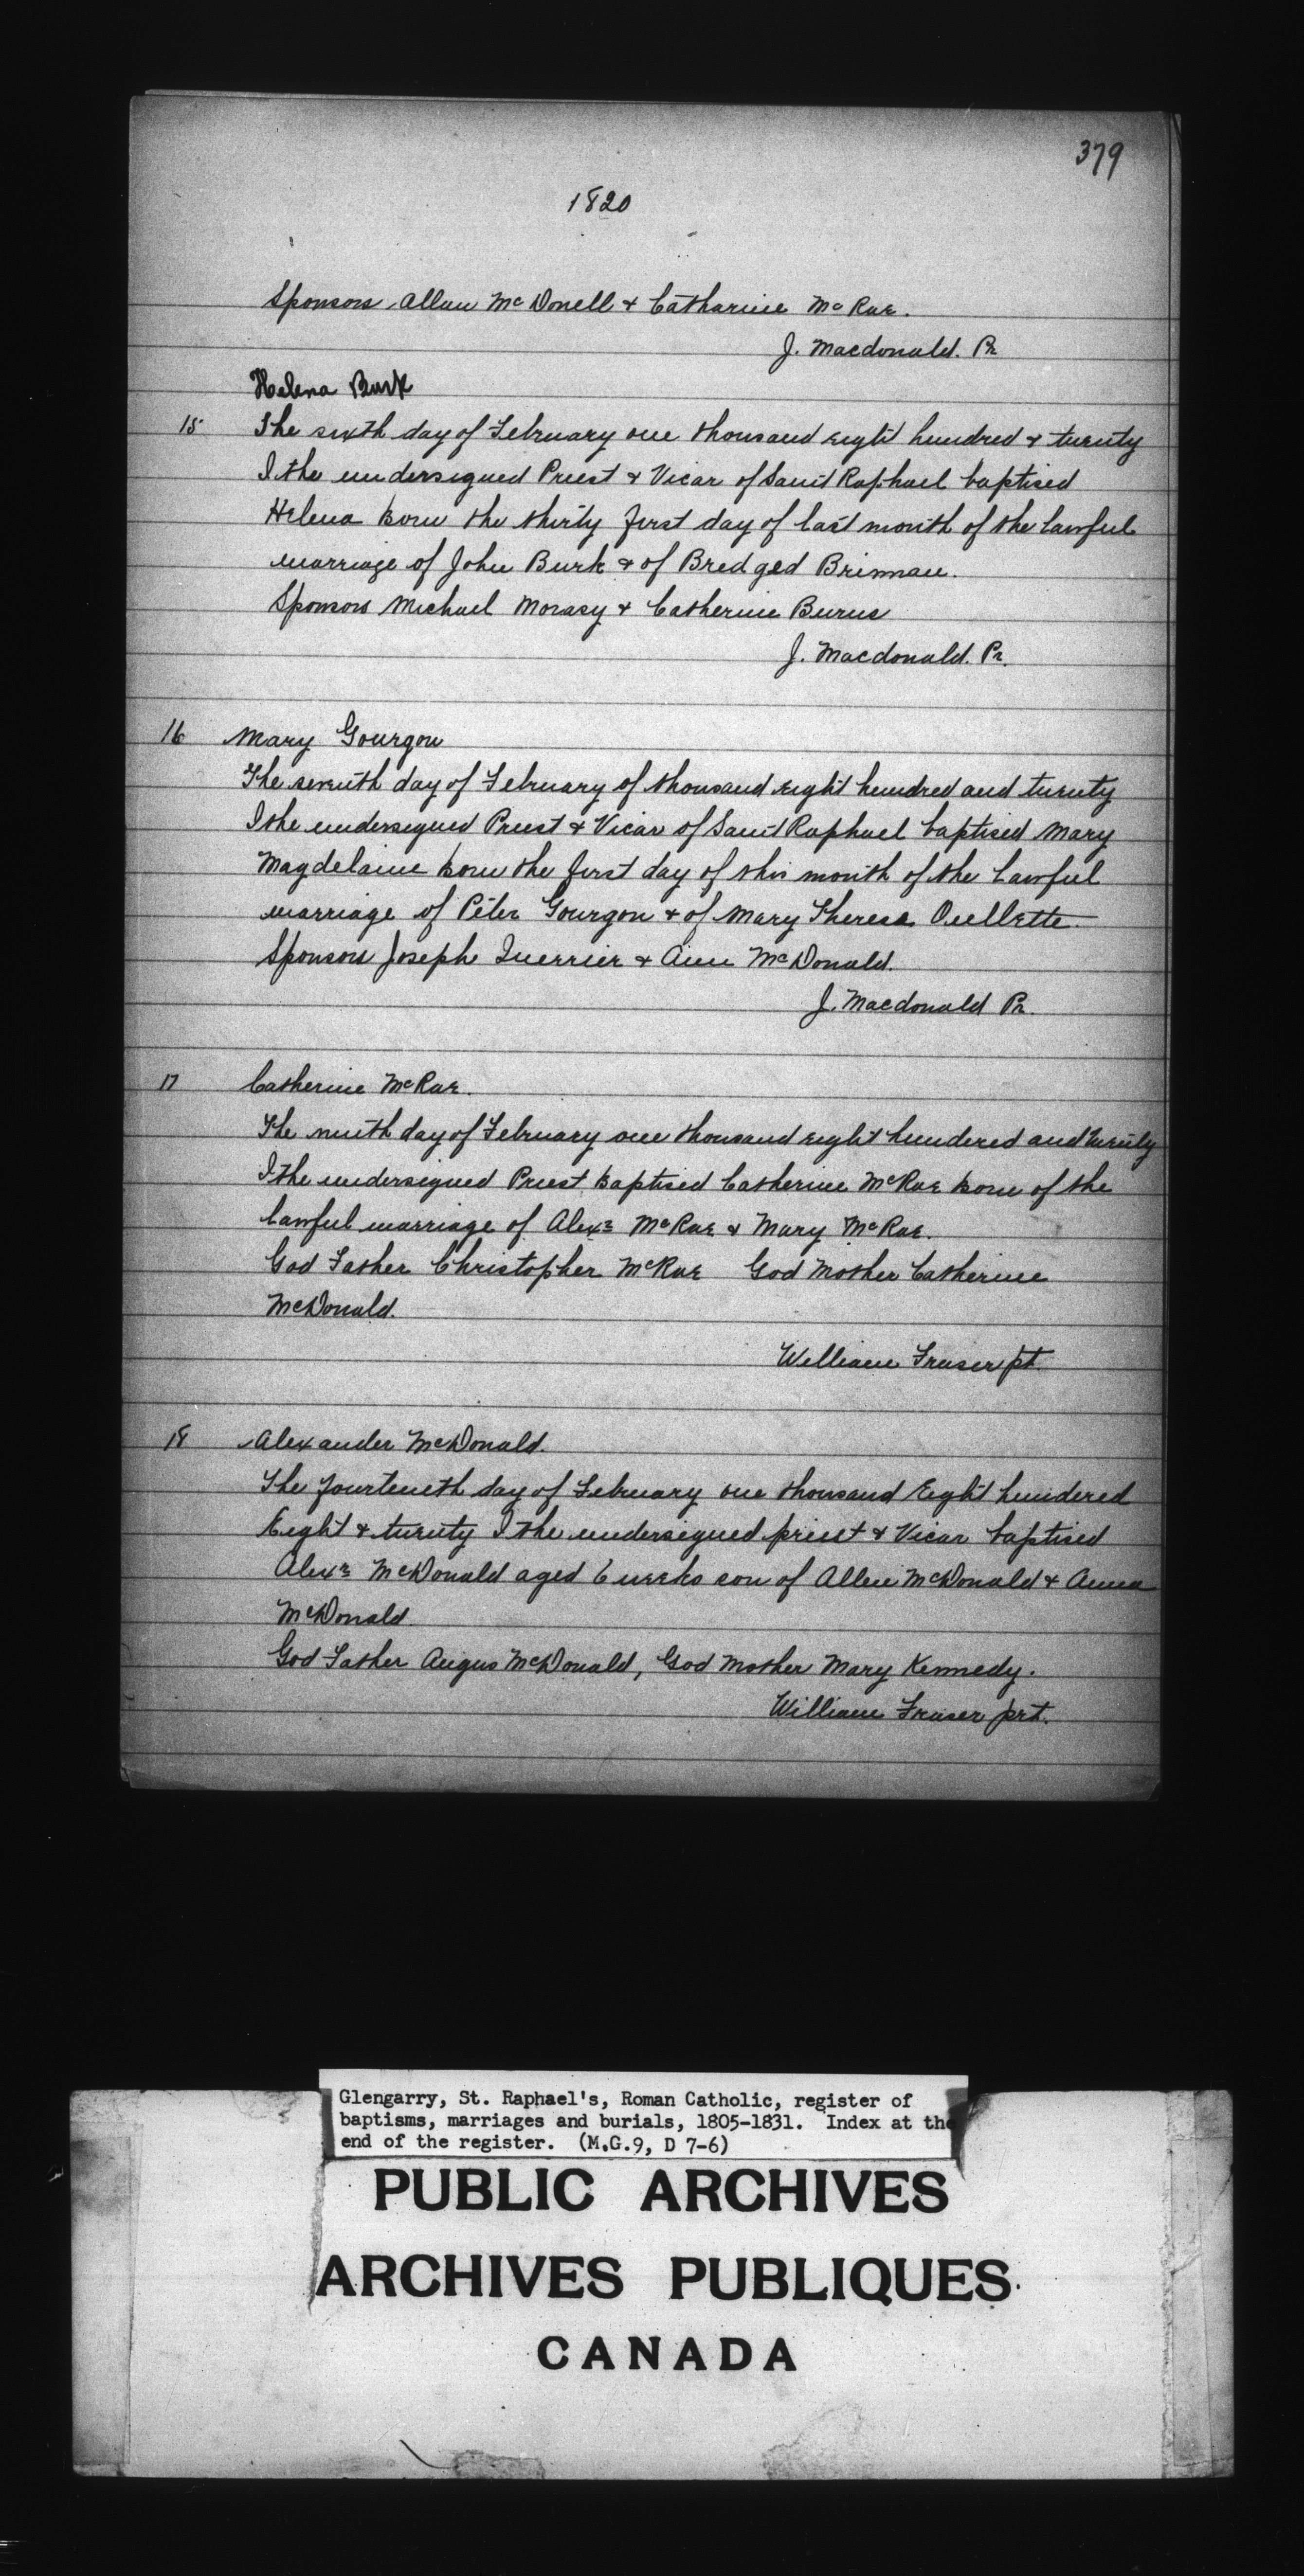 379
1820
Sponsors Allan McDonell & Catharine McRae.
J. Macdonald. Pr
Helena Burk
15 The sixth day of February one thousand eight hundred & twenty
I the undersigned Priest & Vicar of Saint Raphael baptised
Helena born the thirty first day of last month of the lawful
marriage of John Burk & of Bredged Brinnan.
Sponsors Michael Morasy & Catherine Burns
J. Macdonald. Pr.
16 Mary Gourgon
The seventh day of February of thousand eight hundred and twenty
I the undersigned Priest & Vicar of Saint Raphael baptised Mary
Magdelaine born the first day of this month of the lawful
marriage of Peter Gourgon & of Mary Theresa Ouellette.
Sponsors Joseph Guerrier & Ann McDonald.
J. Macdonald Pr.
17 Catherine McRae.
The ninth day of February one thousand eight hundered and twenty
I the undersigned Priest baptised Catherine McRae born of the
lawful marriage of Alexr McRae & Mary McRae.
God Father Christopher McRae God Mother Catherine
McDonald.
William Fraser pt.
18 Alexander McDonald.
The fourteenth day of February one thousand Eight hundered
Eight & twenty I the undersigned priest & Vicar baptised
Alexr McDonald aged 6 weeks son of Allen McDonald & Anna
McDonald.
God Father Angus McDonald, God Mother Mary Kennedy.
William Fraser prt.
Glengarry, St. Raphael's, Roman Catholic, register of
baptisms, marriages and burials, 1805-1831. Index at the
end of the register. (M.G.9, D 7-6)
PUBLIC ARCHIVES
ARCHIVES PUBLIQUES
CANADA